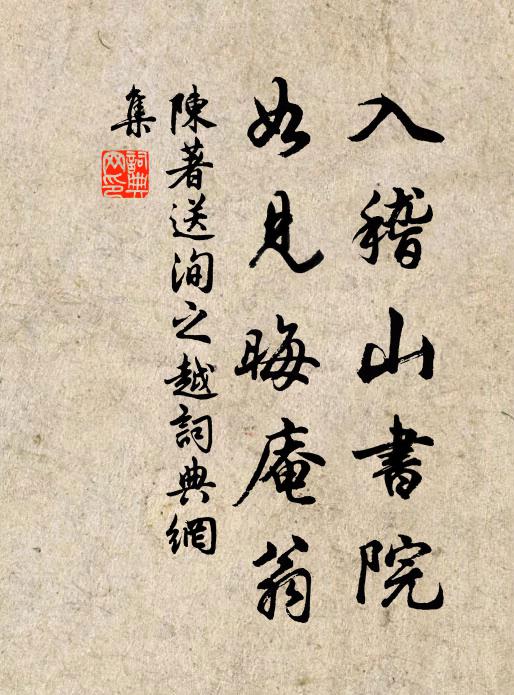 入稽山書院
如見晦庵翁
陳著送洵之越詞典網
集
詞典
网印